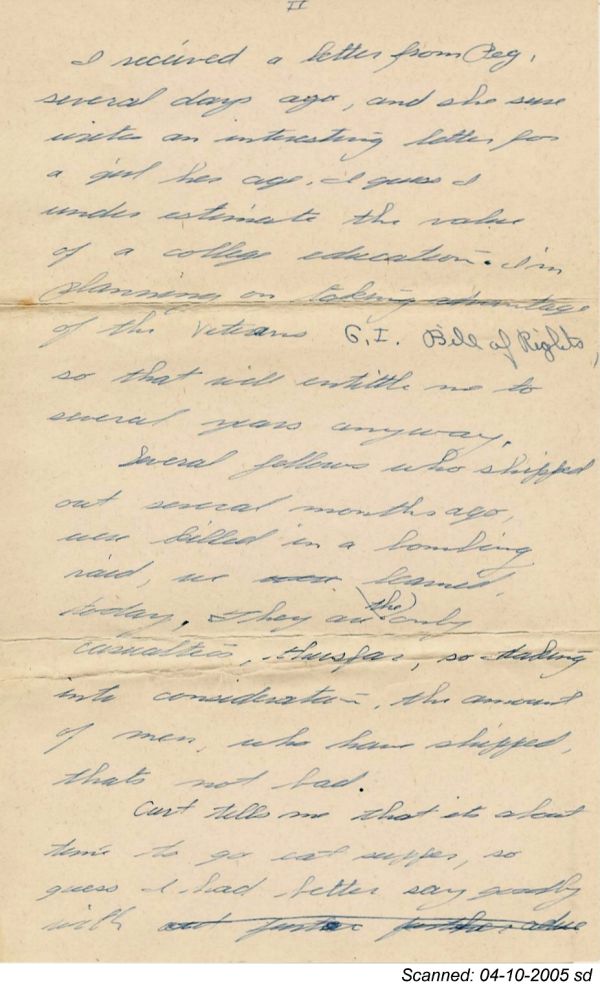 II
I received a letter from Peg,
several days ago, and she sure
writes an interesting letter for
a girl her age. I guess I
under estimate the value
of a college education. I'm
planning on taking advantage
of the Veterans G.I. Bill of Rights,
so that will entittle me to
several years anyway.
Several fellows who shipped
out several months ago,
were killed in a bombing
raid, we learned,
today. They are the only
casualties, thusfar, so taking
into consideration, the amount
of men, who have shipped,
thats not bad.
Curt tells me that its about
time to go eat supper, so
guess I had better say goodby
with out further adue
Scanned: 04-10-2005 sd